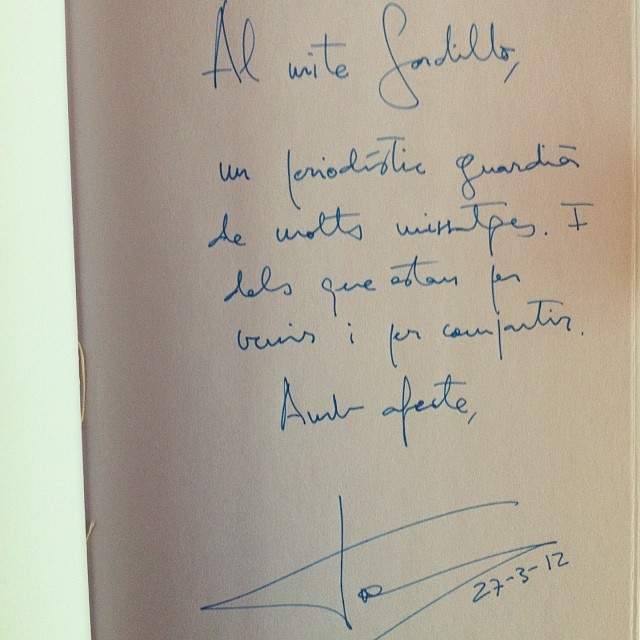 Al mite Gordillo,
un periodístic guardià
de molts missatges. I
dels que estan per
venir i per compartir.
Amb afecte,
27-3-12